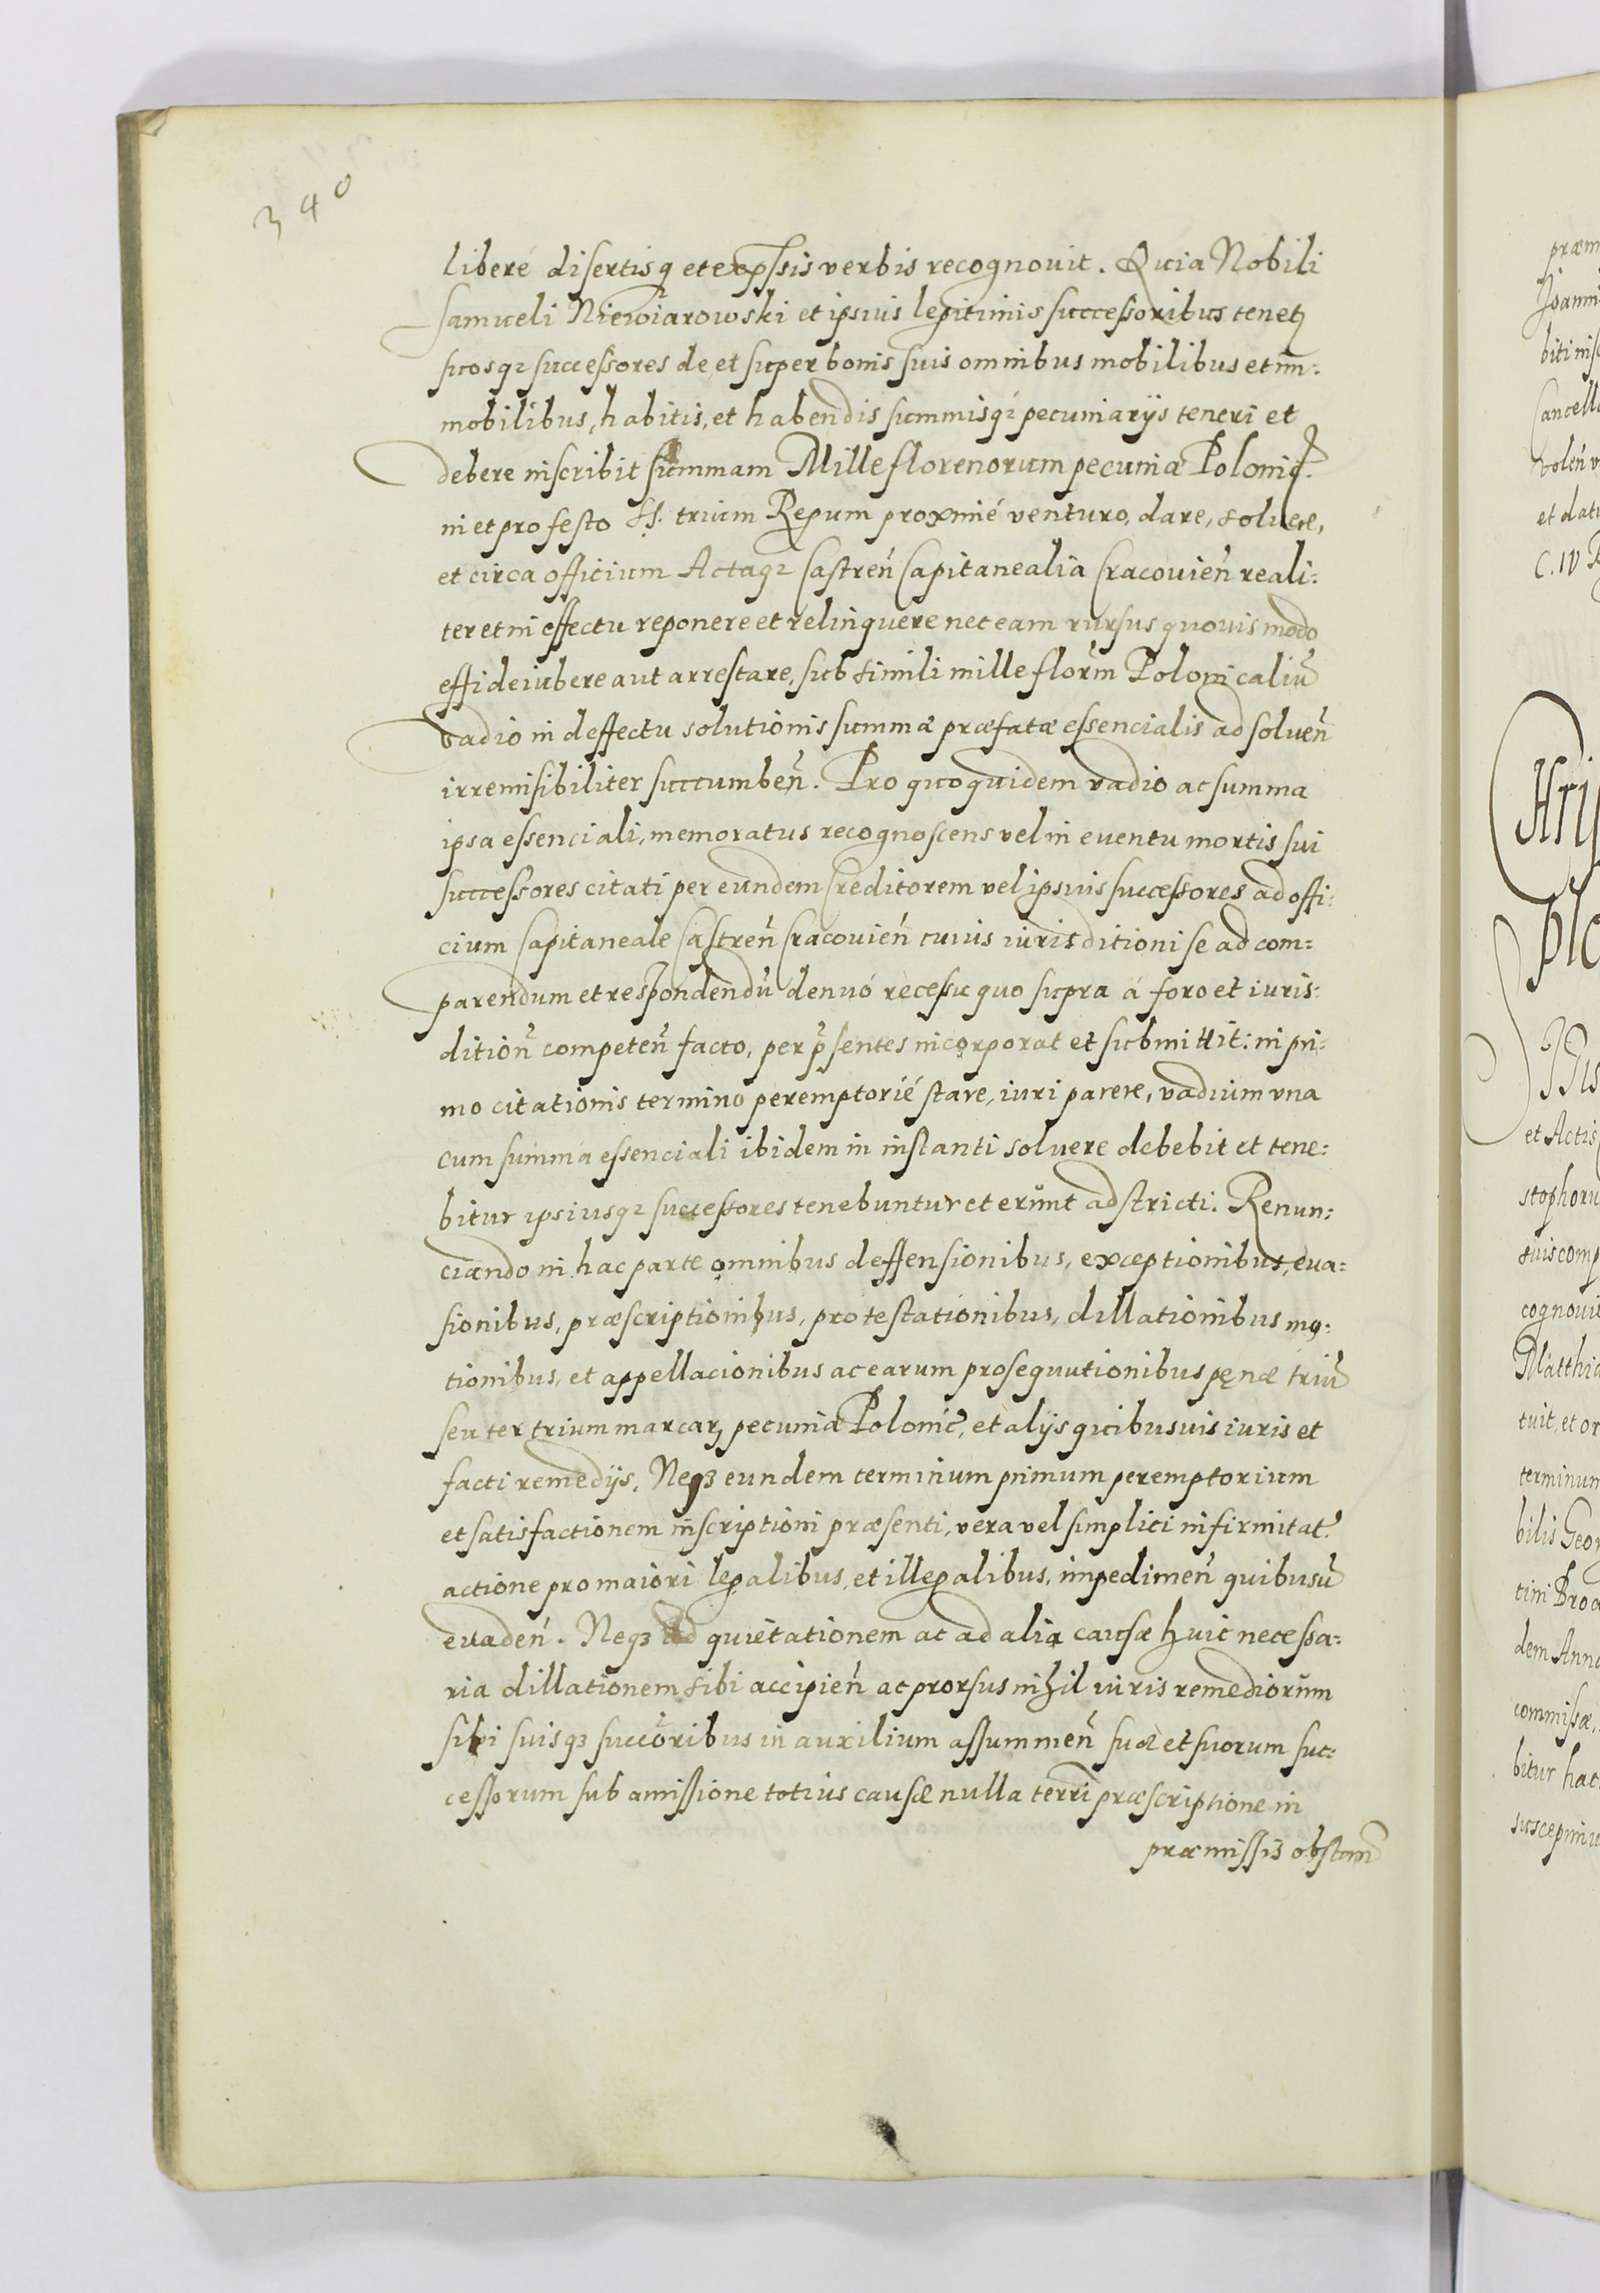 340
liberé disertisq et expssis verbis recognouit. Quia Nobili
Samueli Niewiarowski et ipsius legitimis successoribus tenetꝫ
suosqꝫ successores de et super bonis suis omnibus mobilibus et im̄:
mobilibus, habitis, et habendis summisqꝫ pecuniarijs teneri et
debere inscribit summam Mille florenorum pecuniæ Poloniq.
in et pro festo SS. trium Regum proximé venturo, dare, soluere,
et circa officium Actaqꝫ Castreñ Capitanealia Cracouień reali:
ter et in effectu reponere et relinquere nec eam rursus quouis modo
effideiubere aut arrestare, sub simili mille florm̃ Polonicaliũ
vadio in deffectu solutionis summæ præfatæ essencialis ad soluen̄
irremisibiliter succumben̄. Pro quo quidem vadio ac summa
ipsa essenciali, memoratus recognoscens vel in euentu mortis sui
successores citati per eundem Creditorem vel ipsius successores ad offi:
cium Capitaneale Castren̄ Cracouień cuius iurisditioni se ad com=
parendum et respondendũ denuó recessu quo supra á foro et iuris:
dition̄ competen̄ facto, per p̃sentes incorporat et submittit: in pri:
mo citationis termino peremptorié stare, iuri parere, vadium vna
cum summa essenciali ibidem in instanti soluere debebit et tene:
bitur ipsiusqꝫ successores tenebuntur et erũnt adstricti. Renun:
ciando in hac parte omnibus deffensionibus, exceptionibus, eua=
sionibus, præscriptionibus, protestationibus, dillationibus mo:
tionibus, et appellacionibus ac earum prosequutionibus pęnæ triũ
seu ter trium marcarꝫ pecuniæ Polonic̃, et alijs quibusuis iuris et
facti remedijs. Neqꝫ eundem terminum primum peremptorium
et satisfactionem inscriptioni præsenti, vera vel simplici infirmitat̃
actione pro maiori legalibus, et illegalibus, impedimen̄ quibusũ
euaden̄. Neqꝫ ad quietationem ac ad alia causæ huic necessa=
ria dillationem sibi accipien̄ ac prorsus nihil iuris remediorũm
sibi suisqꝫ succõribus in auxilium assummen̄ suæ et suorum suc:
cessorum sub amissione totius causæ nulla terrĩ præscriptione in
præmissis obstan̄